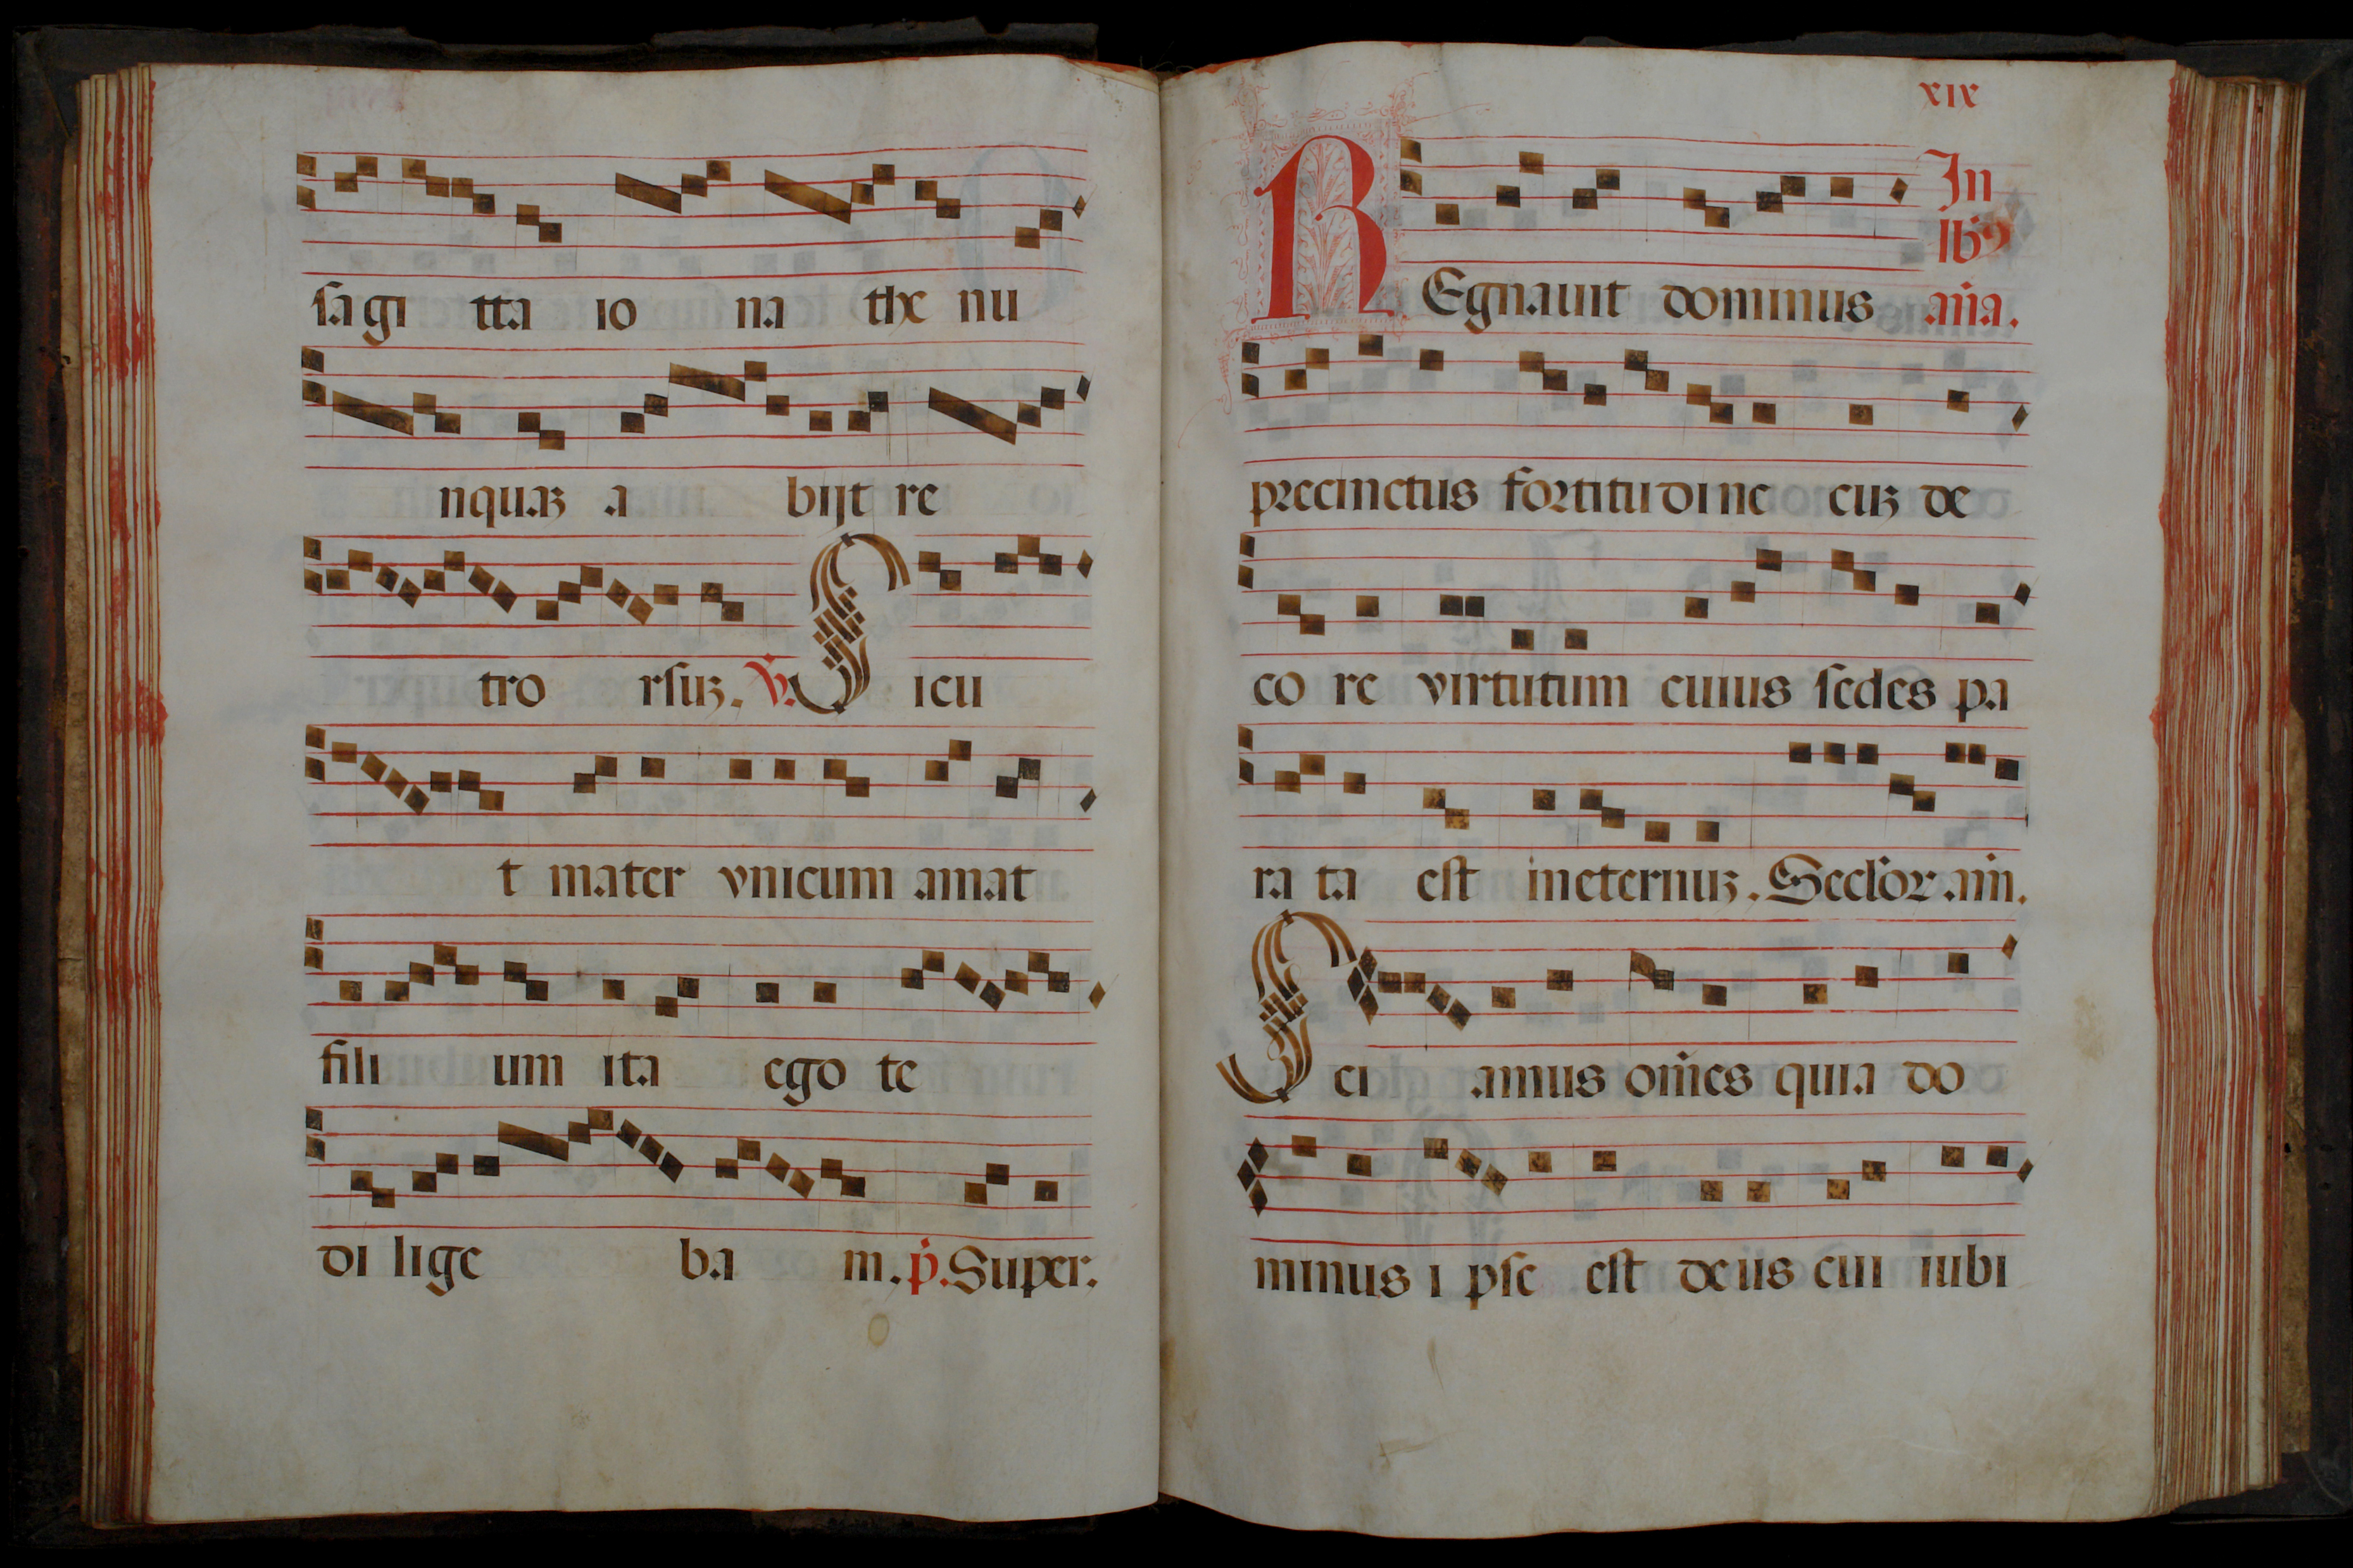 sagi tta io na the nu
nquaꝫ a bijt re
tro rsuꝫ. ℣. Sicu
t mater vnicum amat
fili um ita ego te
di lige ba m. p̄. Super.
xix
In
lb9
REgnauit dominus
an̄a.
precinctus fortitudine cuꝫ de
co re virtutum cuius sedes pa
ra ta est ineternuꝫ. Seclor. am̄.
Sci amus om̄es quia do
minus i pse est deus cui iubi